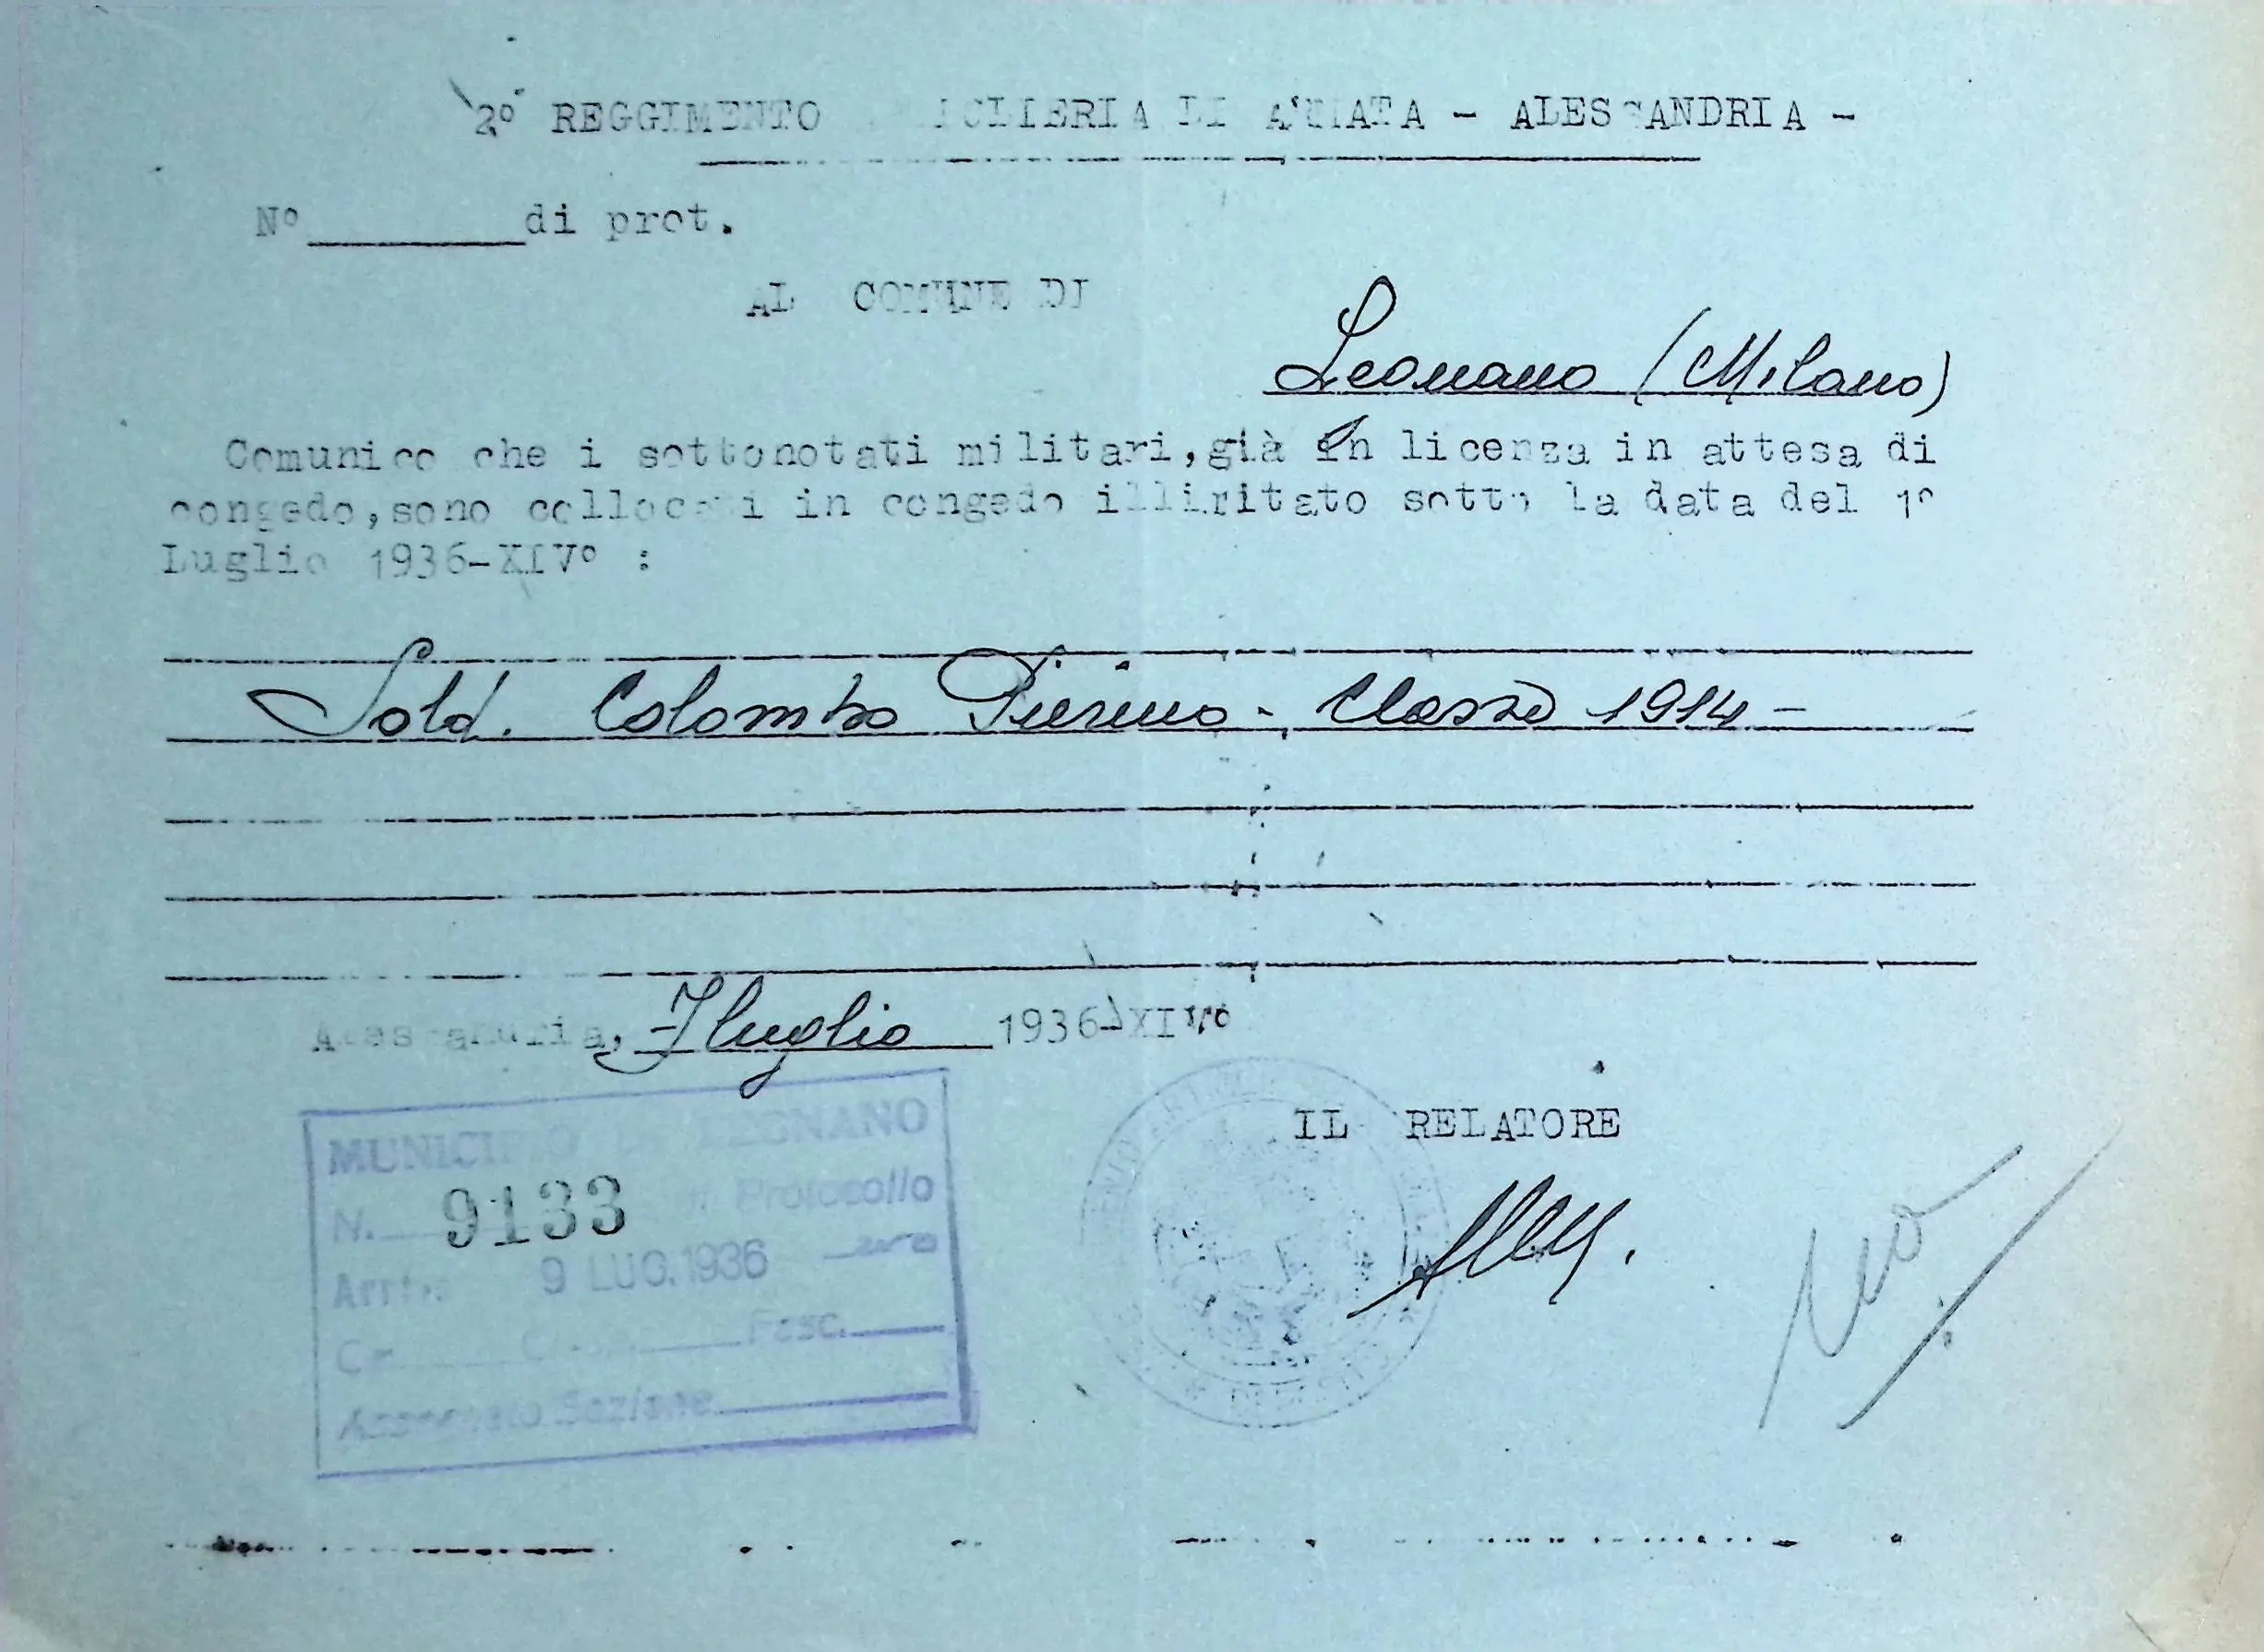 2° REGGIMENTO ARTIGLIERIA DI ARMATA - ALESSANDRIA -
N° di prot.
AL COMUNE DI
Legnano (Milano)
Comunico che i sottonotati militari, già in licenza in attesa di
congedo, sono collocati in congedo illiritato sotto la data del 1°
Luglio 1936-XIV° :
Sold. Colombo Pierino - Classe 1914 -
Alessandria, 7 luglio 1936-XIV°
IL RELATORE
MUNICIPIO DI LEGNANO
N. 9133 di Protocollo
Arrivo 9 LUG. 1936
Fasc.
Assegnato Sezione